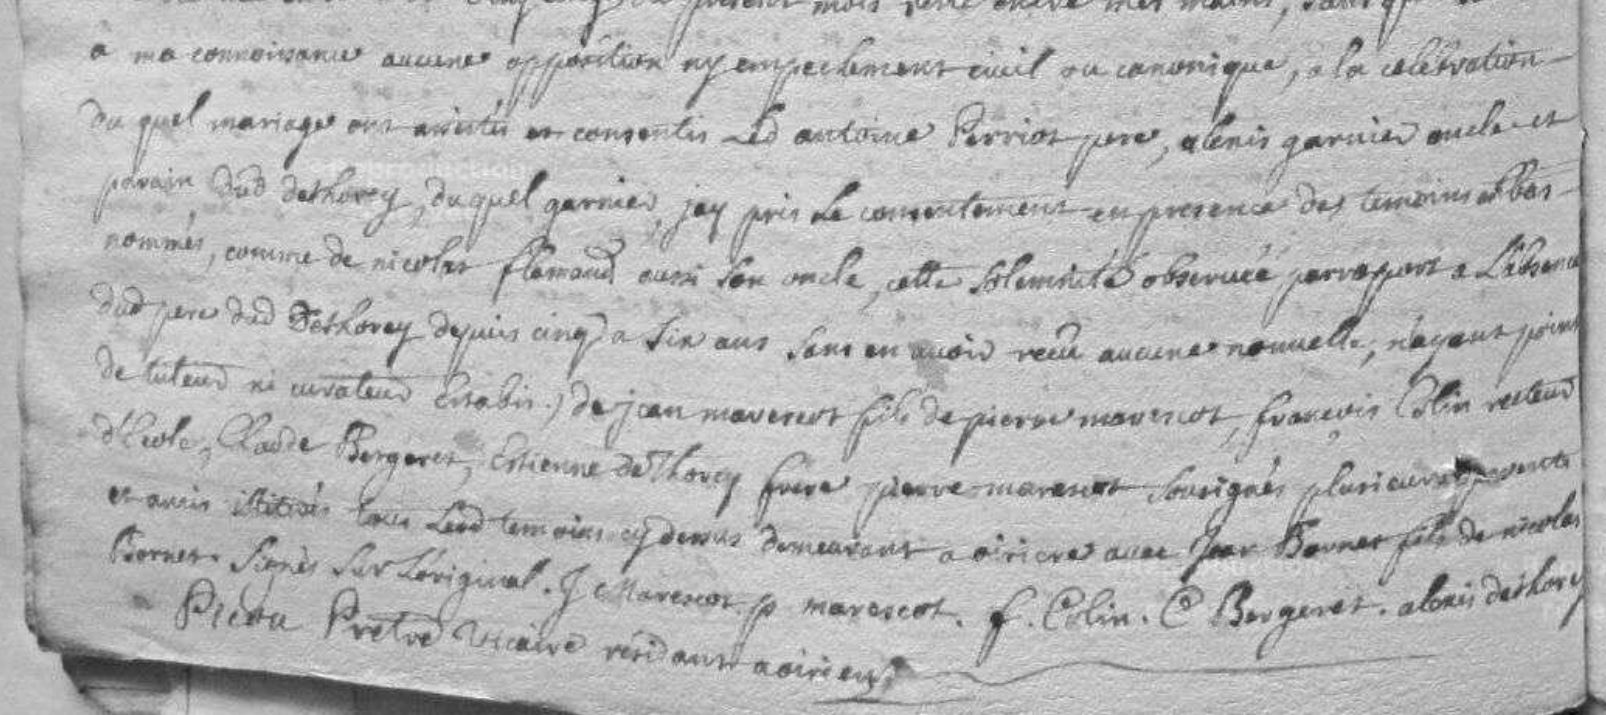 present mois
a ma connoisance aucune opposition ny empechement civil ou canonique, a la celebration
du quel mariage ont assistés et consentis led antoine Perriot pere, alexis garnier oncle et
parain dud dethorey, duquel garnier, jay pris le consentement en presence des temoins cy bas
nommés, comme de nicolas flamand aussi son oncle, cette solemnité observée par raport a L'absence
dud pere dud Dethorey depuis cinq a six ans sans en avoir recu aucune nouvelle, n'ayant point
de tuteur ni curateur Etabis.) de jean marescot fils de pierre marescot, francois Colin recteur
d'Ecole, Claude Bergeret, Estienne dethorey frere pierre marescot sousignés plusieurs parents
et amis tous Lesd temoins cy dessus demeurant a oiriere avec Jean Bornet fils de nicolas
Bornet. Signés sur L'original. J Marescot p marescot. f. Colin. C Bergeret. alexis dethorey
Prêtre Vicaire résidant a